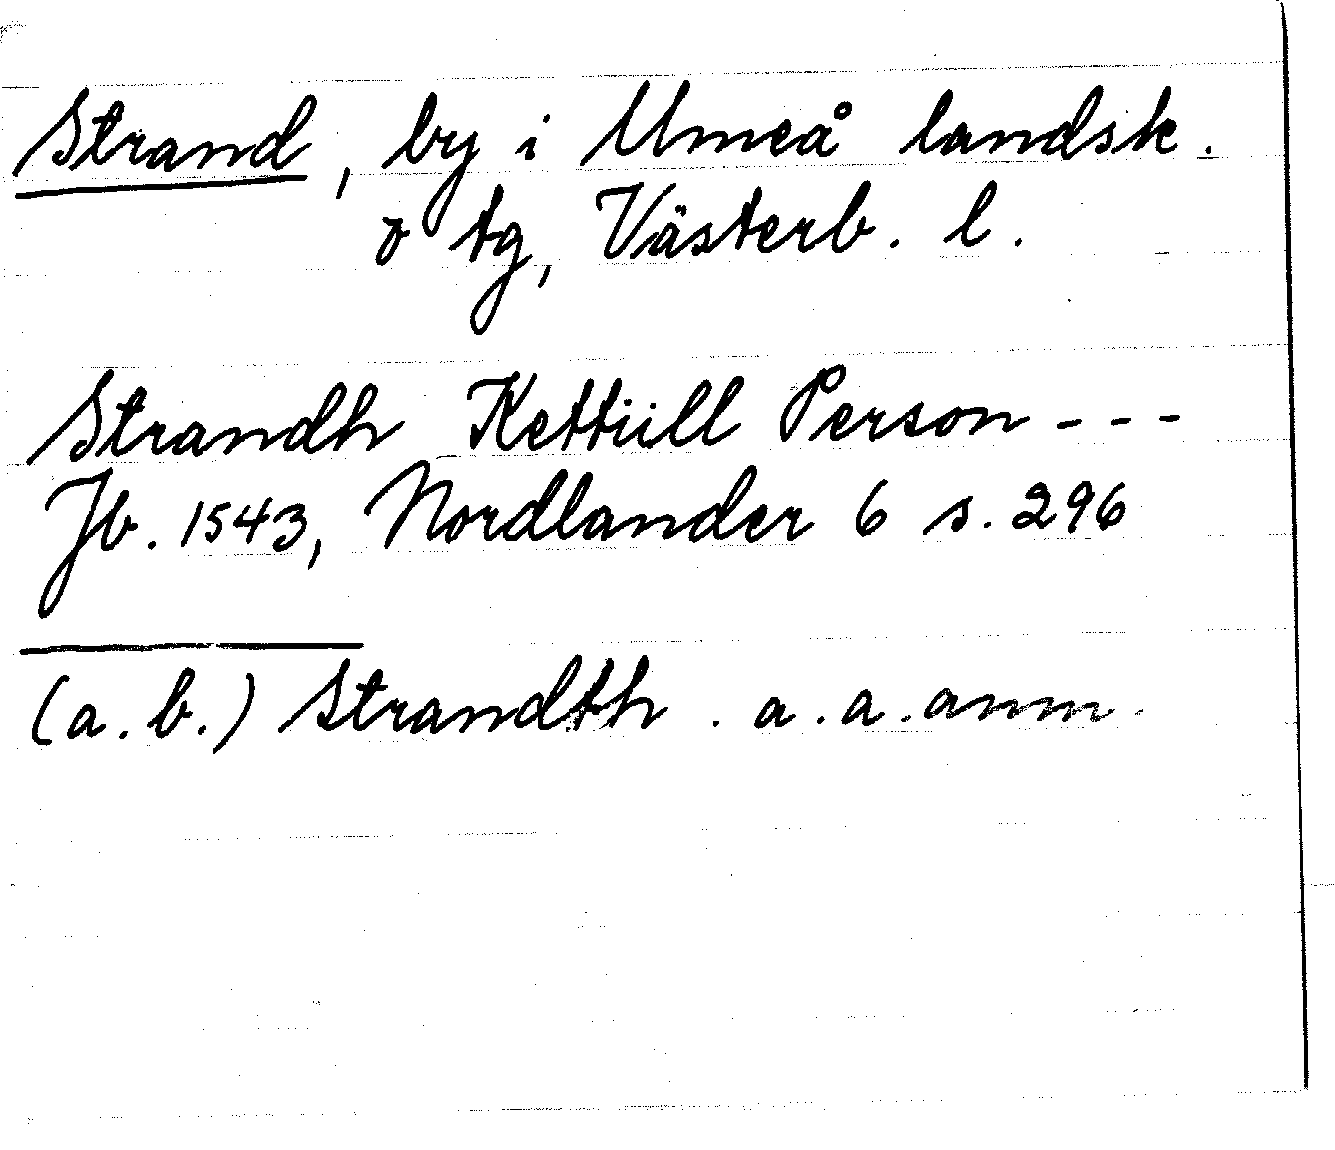 Strand, by i Umeå landsk.
o tg, Västerb. l.
Strandh Kettüll Person - - -
Jb. 1543, Nordlander 6 s. 296
(a. b.) Strandth. a. a. anm.